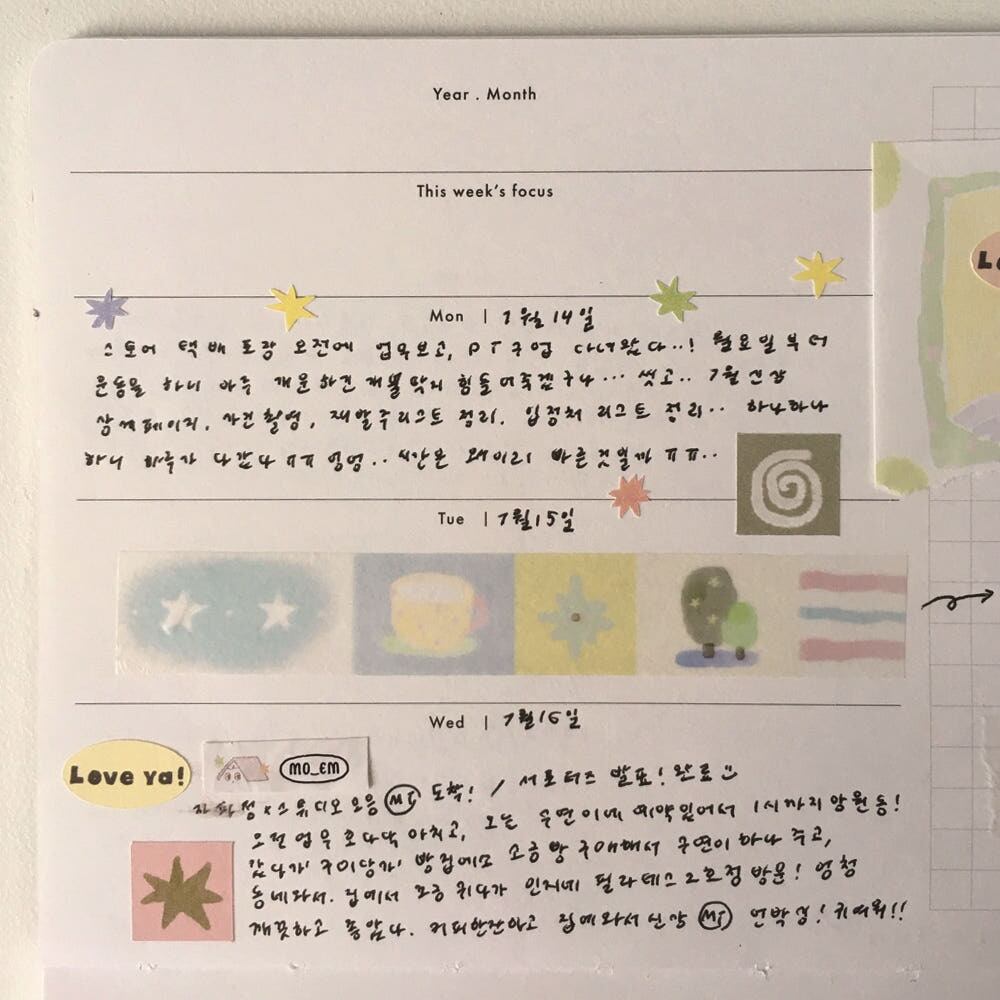 Year . Month
This week's focus
Mon | 7월 14일
스토어 택배 포장 오전에 업무보고, PT수업 다녀왔다..! 월요일부터
운동을 하니 아주 개운하긴 개뿔 맞지 힘들어죽겠구나... 씻고.. 7월 신상
상세페이지, 사진촬영, 재발주리스트 정리, 입점처 리스트 정리.. 하나하나
하니 하루가 다갔다 ㅠㅠ 엉엉.. 시간은 왜이리 빠른것일까 ㅠㅠ..
Tue | 7월 15일
Wed | 7월 16일
Love Ya!
MO_EM
스튜디오 모음 도착! / 서포터즈 발표! 완료
오전 업무 호다닥 마치고, 오는 수연이네 예약있어서 1시까지 망원동!
갔다가 구이당가 빵집에소 소금빵 구매해서 수연이 하나 주고,
동네와서. 집에서 조금 쉬다가 인지네 필라테스 2호점 방문! 엄청
깨끗하고 좋았다. 커피한잔하고 집에와서 신상 언박싱! 귀여워!!
Lo